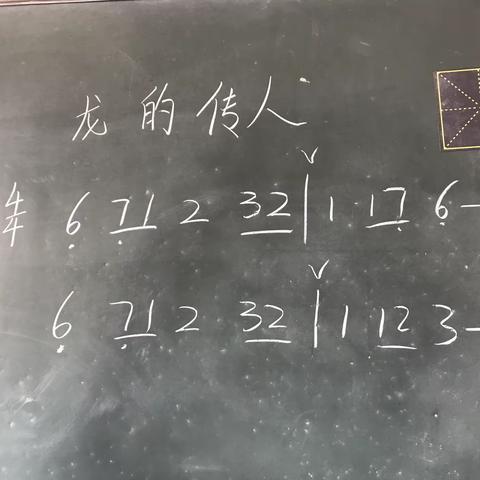 龙的传人
4/4 6̣ 7̣1 2 32 | 1 17̣ 6̣ -
6̣ 7̣1 2 32 | 1 12 3 -